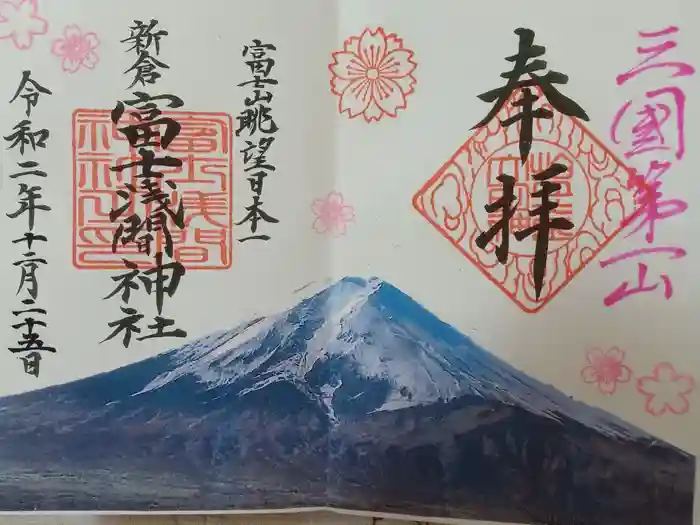 三國第一山
奉拝
富士山眺望日本一
新倉富士浅間神社
令和二年十二月二十五日